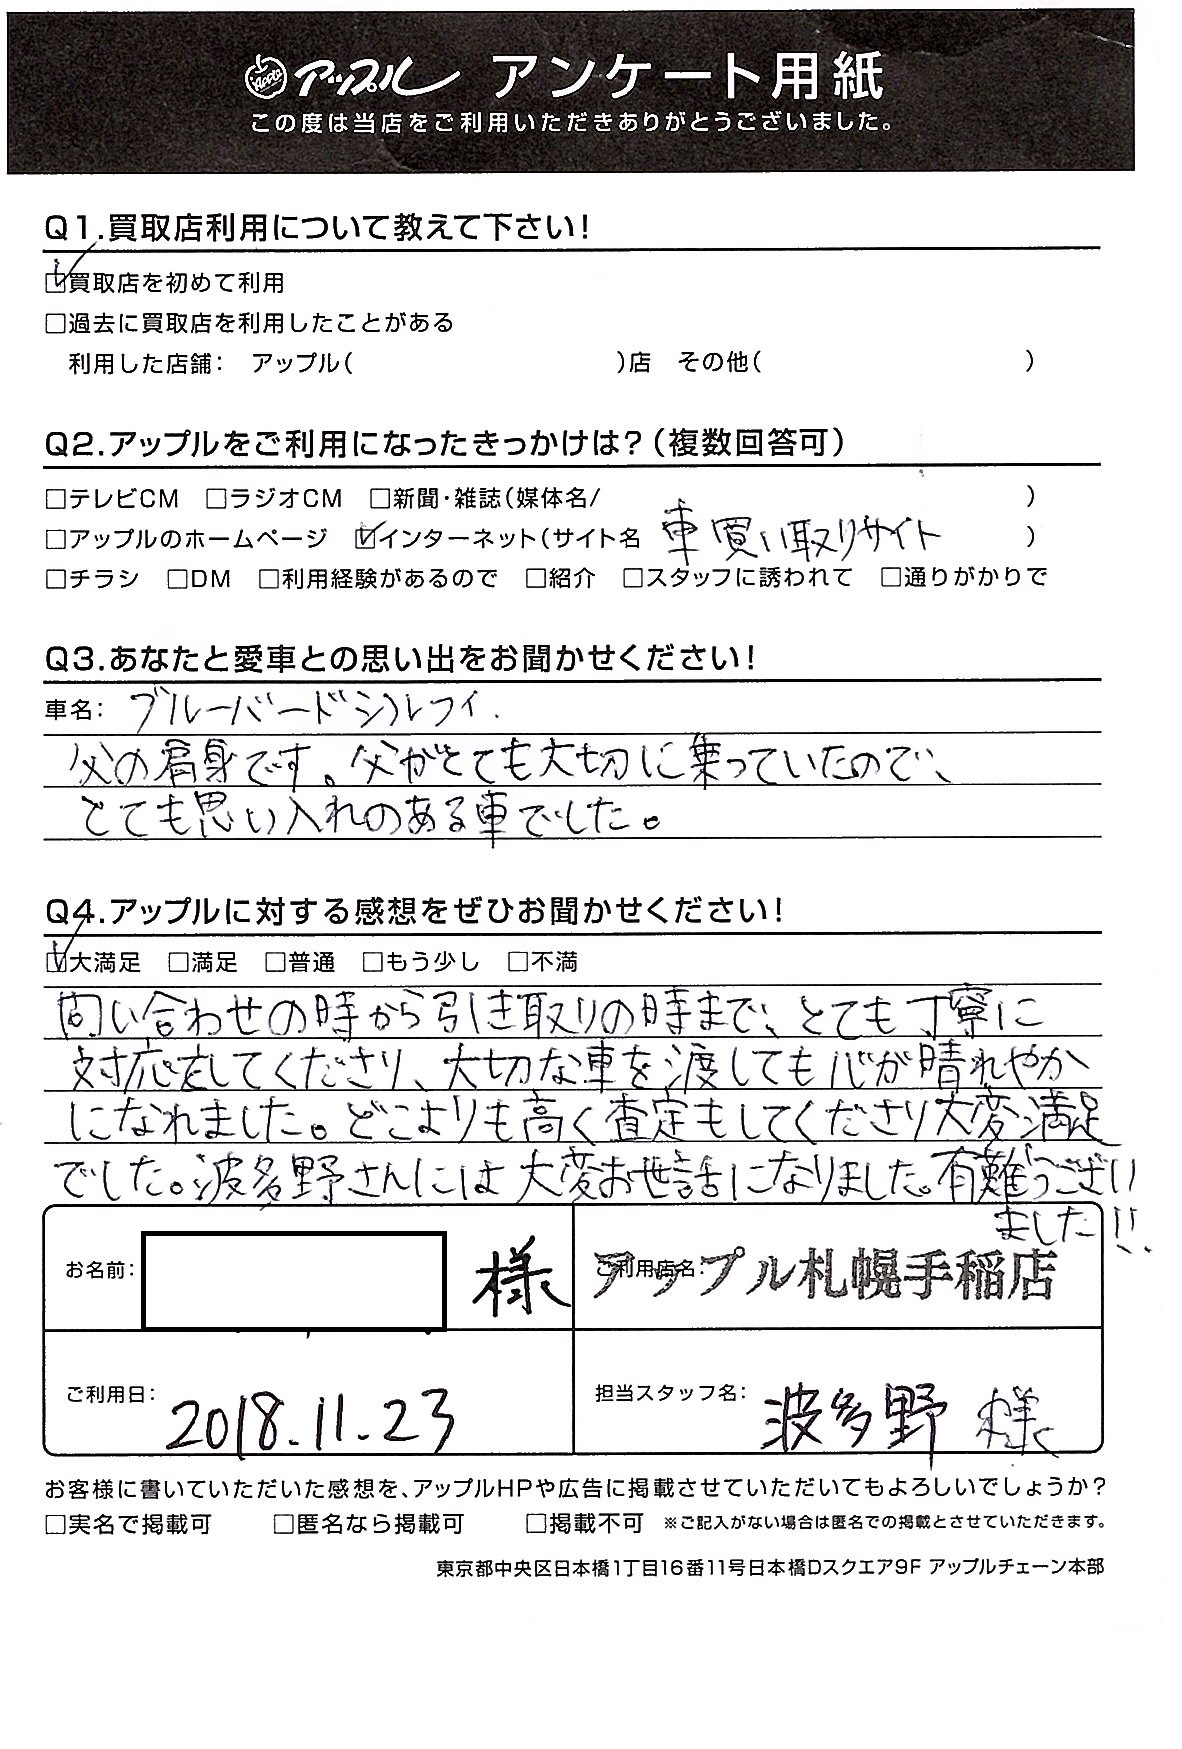 Apple アップル アンケート用紙
この度は当店をご利用いただきありがとうございました。
Q1.買取店利用について教えて下さい!
☑買取店を初めて利用
□過去に買取店を利用したことがある
利用した店舗: アップル( )店 その他( )
Q2.アップルをご利用になったきっかけは?(複数回答可)
□テレビCM □ラジオCM □新聞・雑誌(媒体名/ )
□アップルのホームページ ☑インターネット(サイト名 車買い取りサイト )
□チラシ □DM □利用経験があるので □紹介 □スタッフに誘われて □通りがかりで
Q3.あなたと愛車との思い出をお聞かせください!
車名: ブルーバードシルフィ.
父の肩身です。父がとても大切に乗っていたので、
とても思い入れのある車でした。
Q4.アップルに対する感想をぜひお聞かせください!
☑大満足 □満足 □普通 □もう少し □不満
問い合わせの時から引き取りの時まで、とても丁寧に
対応をしてくださり、大切な車を渡しても心が晴れやか
になれました。どこよりも高く査定もしてくださり大変満足
でした。波多野さんには大変お世話になりました。有難うござい
ました!!
お名前: 様 ご利用店名: アップル札幌手稲店
ご利用日: 2018.11.23 担当スタッフ名: 波多野 様
お客様に書いていただいた感想を、アップルHPや広告に掲載させていただいてもよろしいでしょうか?
□実名で掲載可 □匿名なら掲載可 □掲載不可 ※ご記入がない場合は匿名での掲載とさせていただきます。
東京都中央区日本橋1丁目16番11号日本橋Dスクエア9F アップルチェーン本部